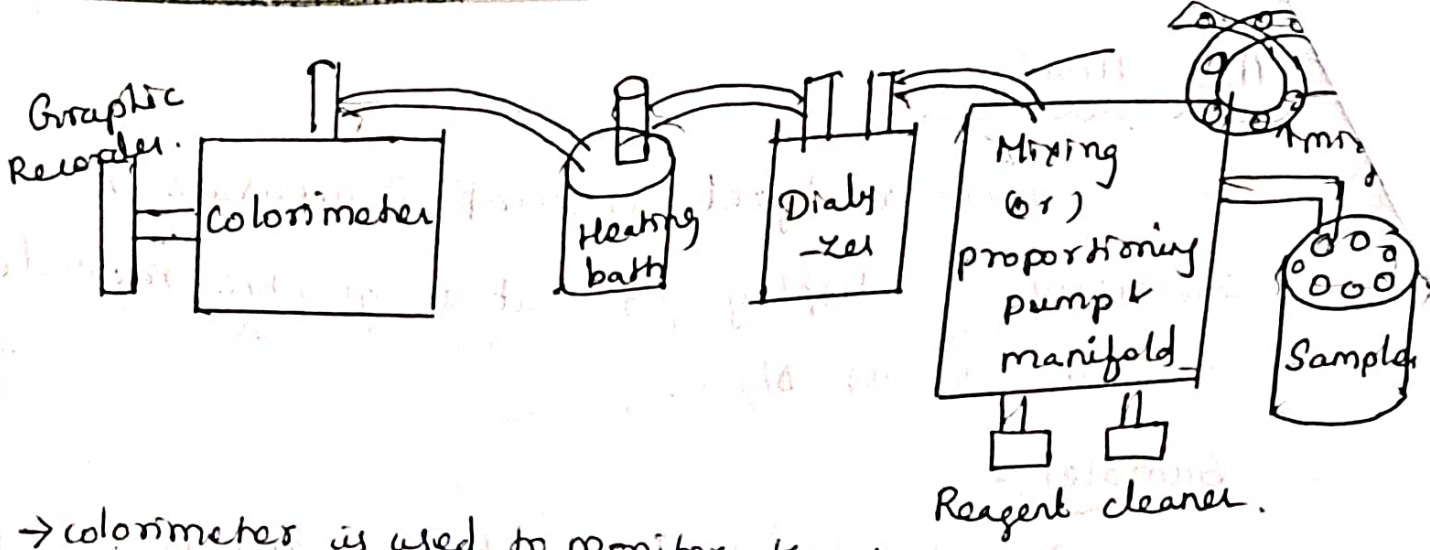 Graphic
Recorder.
Colorimeter
Heating
bath
Dialy
-zer
Mixing
(or)
proportioning
pump &
manifold
Sampler
Reagent cleaner.
→ colorimeter is used to monitor the